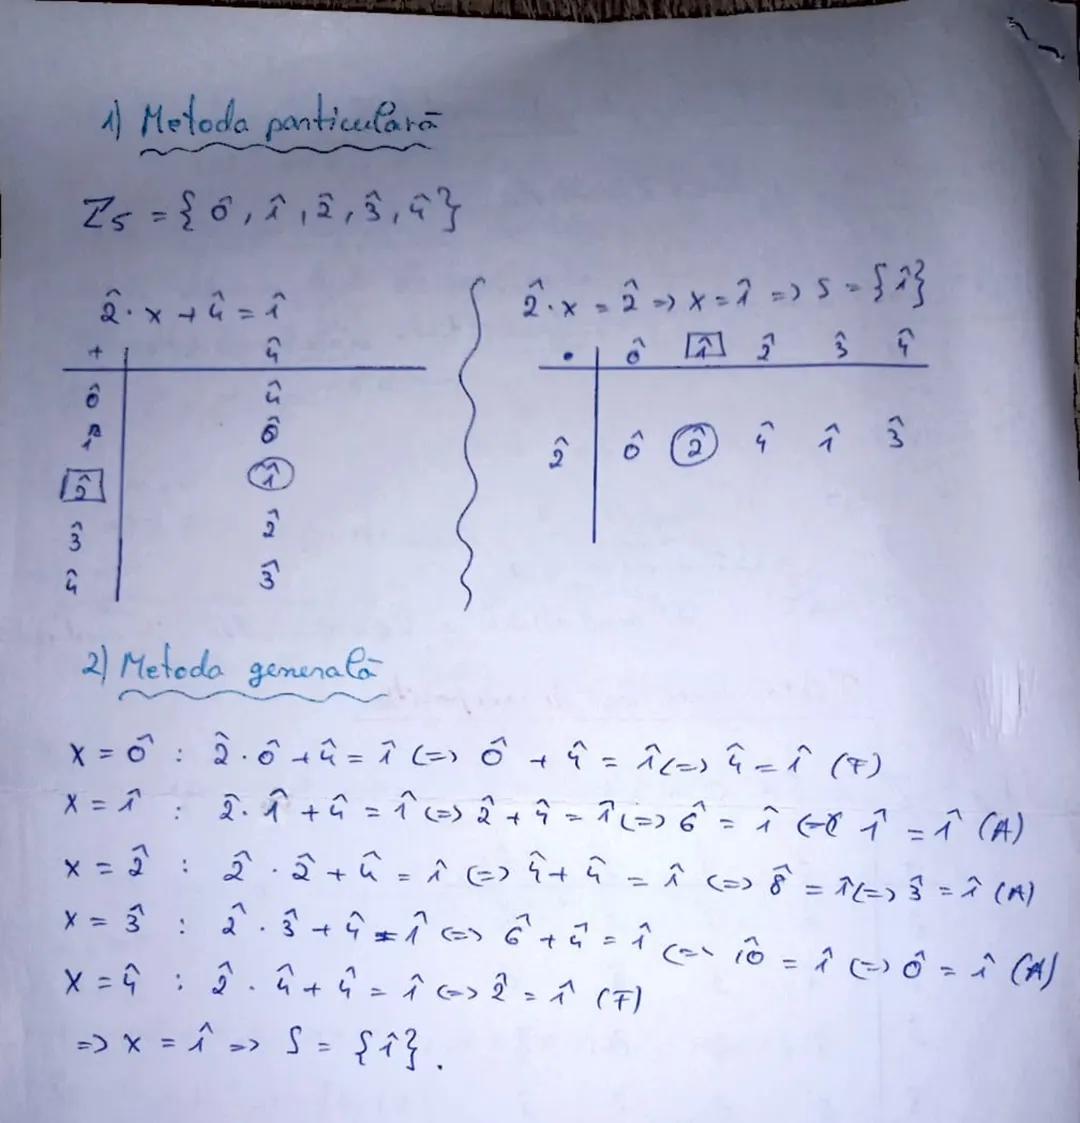 1) Metoda particulară
Z₅ = { 0̂, 1̂, 2̂, 3̂, 4̂ }
2̂ · x + 4̂ = 1̂
+ | 4̂
0̂ | 4̂
1̂ | 0̂
2̂ | 1̂
3̂ | 2̂
4̂ | 3̂
2̂ · x = 2̂ => x = 1̂ => S = {1̂}
• | 0̂ 1̂ 2̂ 3̂ 4̂
2̂ | 0̂ 2̂ 4̂ 1̂ 3̂
2) Metoda generală
x = 0̂ : 2̂ · 0̂ + 4̂ = 1̂ (=> 0̂ + 4̂ = 1̂ (=> 4̂ = 1̂ (F)
x = 1̂ : 2̂ · 1̂ + 4̂ = 1̂ (=> 2̂ + 4̂ = 1̂ (=> 6̂ = 1̂ (=> 1̂ = 1̂ (A)
x = 2̂ : 2̂ · 2̂ + 4̂ = 1̂ (=> 4̂ + 4̂ = 1̂ (=> 8̂ = 1̂ (=> 3̂ = 1̂ (A)
x = 3̂ : 2̂ · 3̂ + 4̂ = 1̂ (=> 6̂ + 4̂ = 1̂ (=> 10̂ = 1̂ (=> 0̂ = 1̂ (A)
x = 4̂ : 2̂ · 4̂ + 4̂ = 1̂ (=> 2̂ = 1̂ (F)
=> x = 1̂ => S = {1̂}.